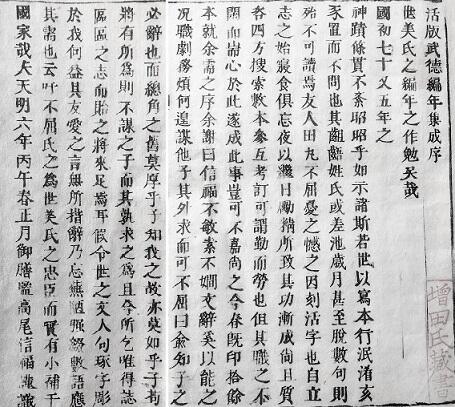 活版武德編年集成序
世美氏之編年之作勉矣哉
國初七十又五年之
神蹟條貫不紊昭昭乎如示諸斯若世以寫本行泯洧亥
豕置而不問也其齟齬姓氏或差池歲月甚至脫數句則
殆不可讀焉友人田九不屈憂之憾之因刻活字也自立
志之始寢食俱忘夜以繼日勵精所致其功漸成尙且質
各四方搜索數本參互考訂可謂勤而勞也但其職之不
閑而耑心於此遂成此事豈可不嘉尚之今春既印拾餘
本就余需之序余謝曰信福不敏素不嫺文辭奚以能之
况職劇務煩何遑謀他子其外求而可不屈曰僉知子之
必辭也而總角之舊莫厚乎子知我之故亦莫如乎子苟
將有所爲則不謀之子而其孰求之爲且今所乞唯得誌
區區之志而貽之將來足焉耳假令世之文人句琢字彫
於我何益其友愛之言無所措辭乃忘無綴數語應
其需也云吁不屈氏之爲世美氏之忠臣而實有小補于
國家哉天明六年丙午春正月御膳監高尾信福謹識
增田氏藏書